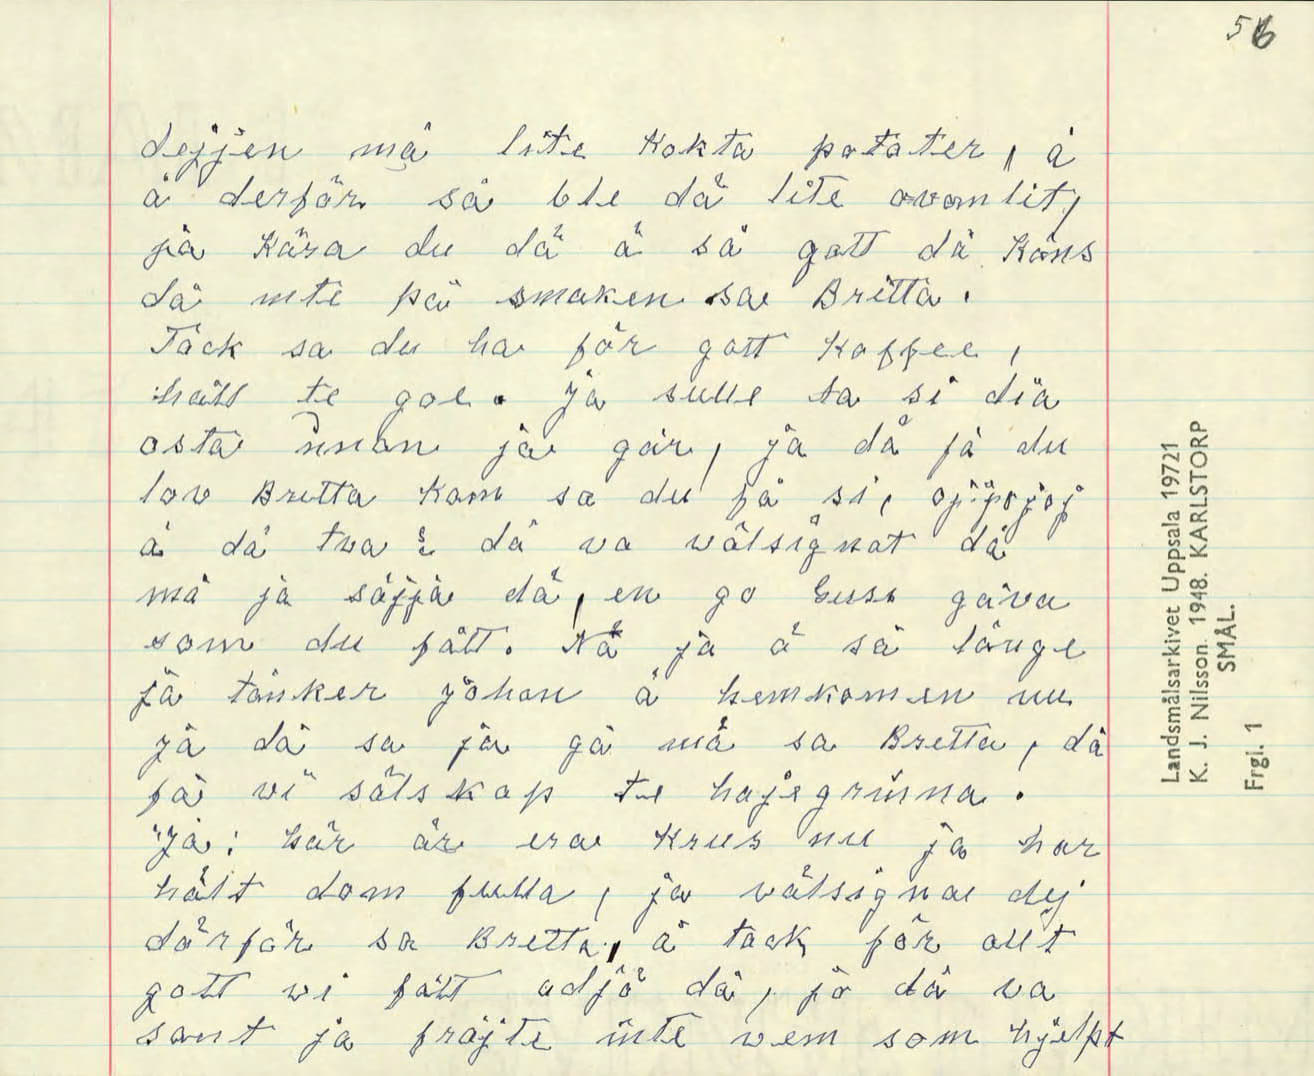 56
dejjen må lite kokta potater, å
å derför så ble dä lite ovomlit,
ja kära du dä ä så gott dä käns
dä inte på smaken sa Britta.
Tack sa du ha för gott kaffee,
häll te goe. Ja sulle ta si dia
osta innan ja går, ja dä få du
lov Britta kom sa du få si, ojojojoj
ä dä twa? dä va wälsignat dä
må ja säjja dä, en go Guss gåva
som du fått. Nä ja ä så länge
ja tänker Johan ä hemkomen nu
Ja dä sa ja gä må sa Bretta, då
få wi sälskap te hajegrinna.
"Ja: här är era krus nu ja har
hält dom fulla, ja välsigna dej
därför sa Bretta, å tack för allt
gott wi fått adjö då, jo dä va
sant ja fräjte inte wem som hjelpt
Landsmålsarkivet Uppsala 19721
K. J. Nilsson. 1948. KARLSTORP
SMÅL.
Frgl. 1